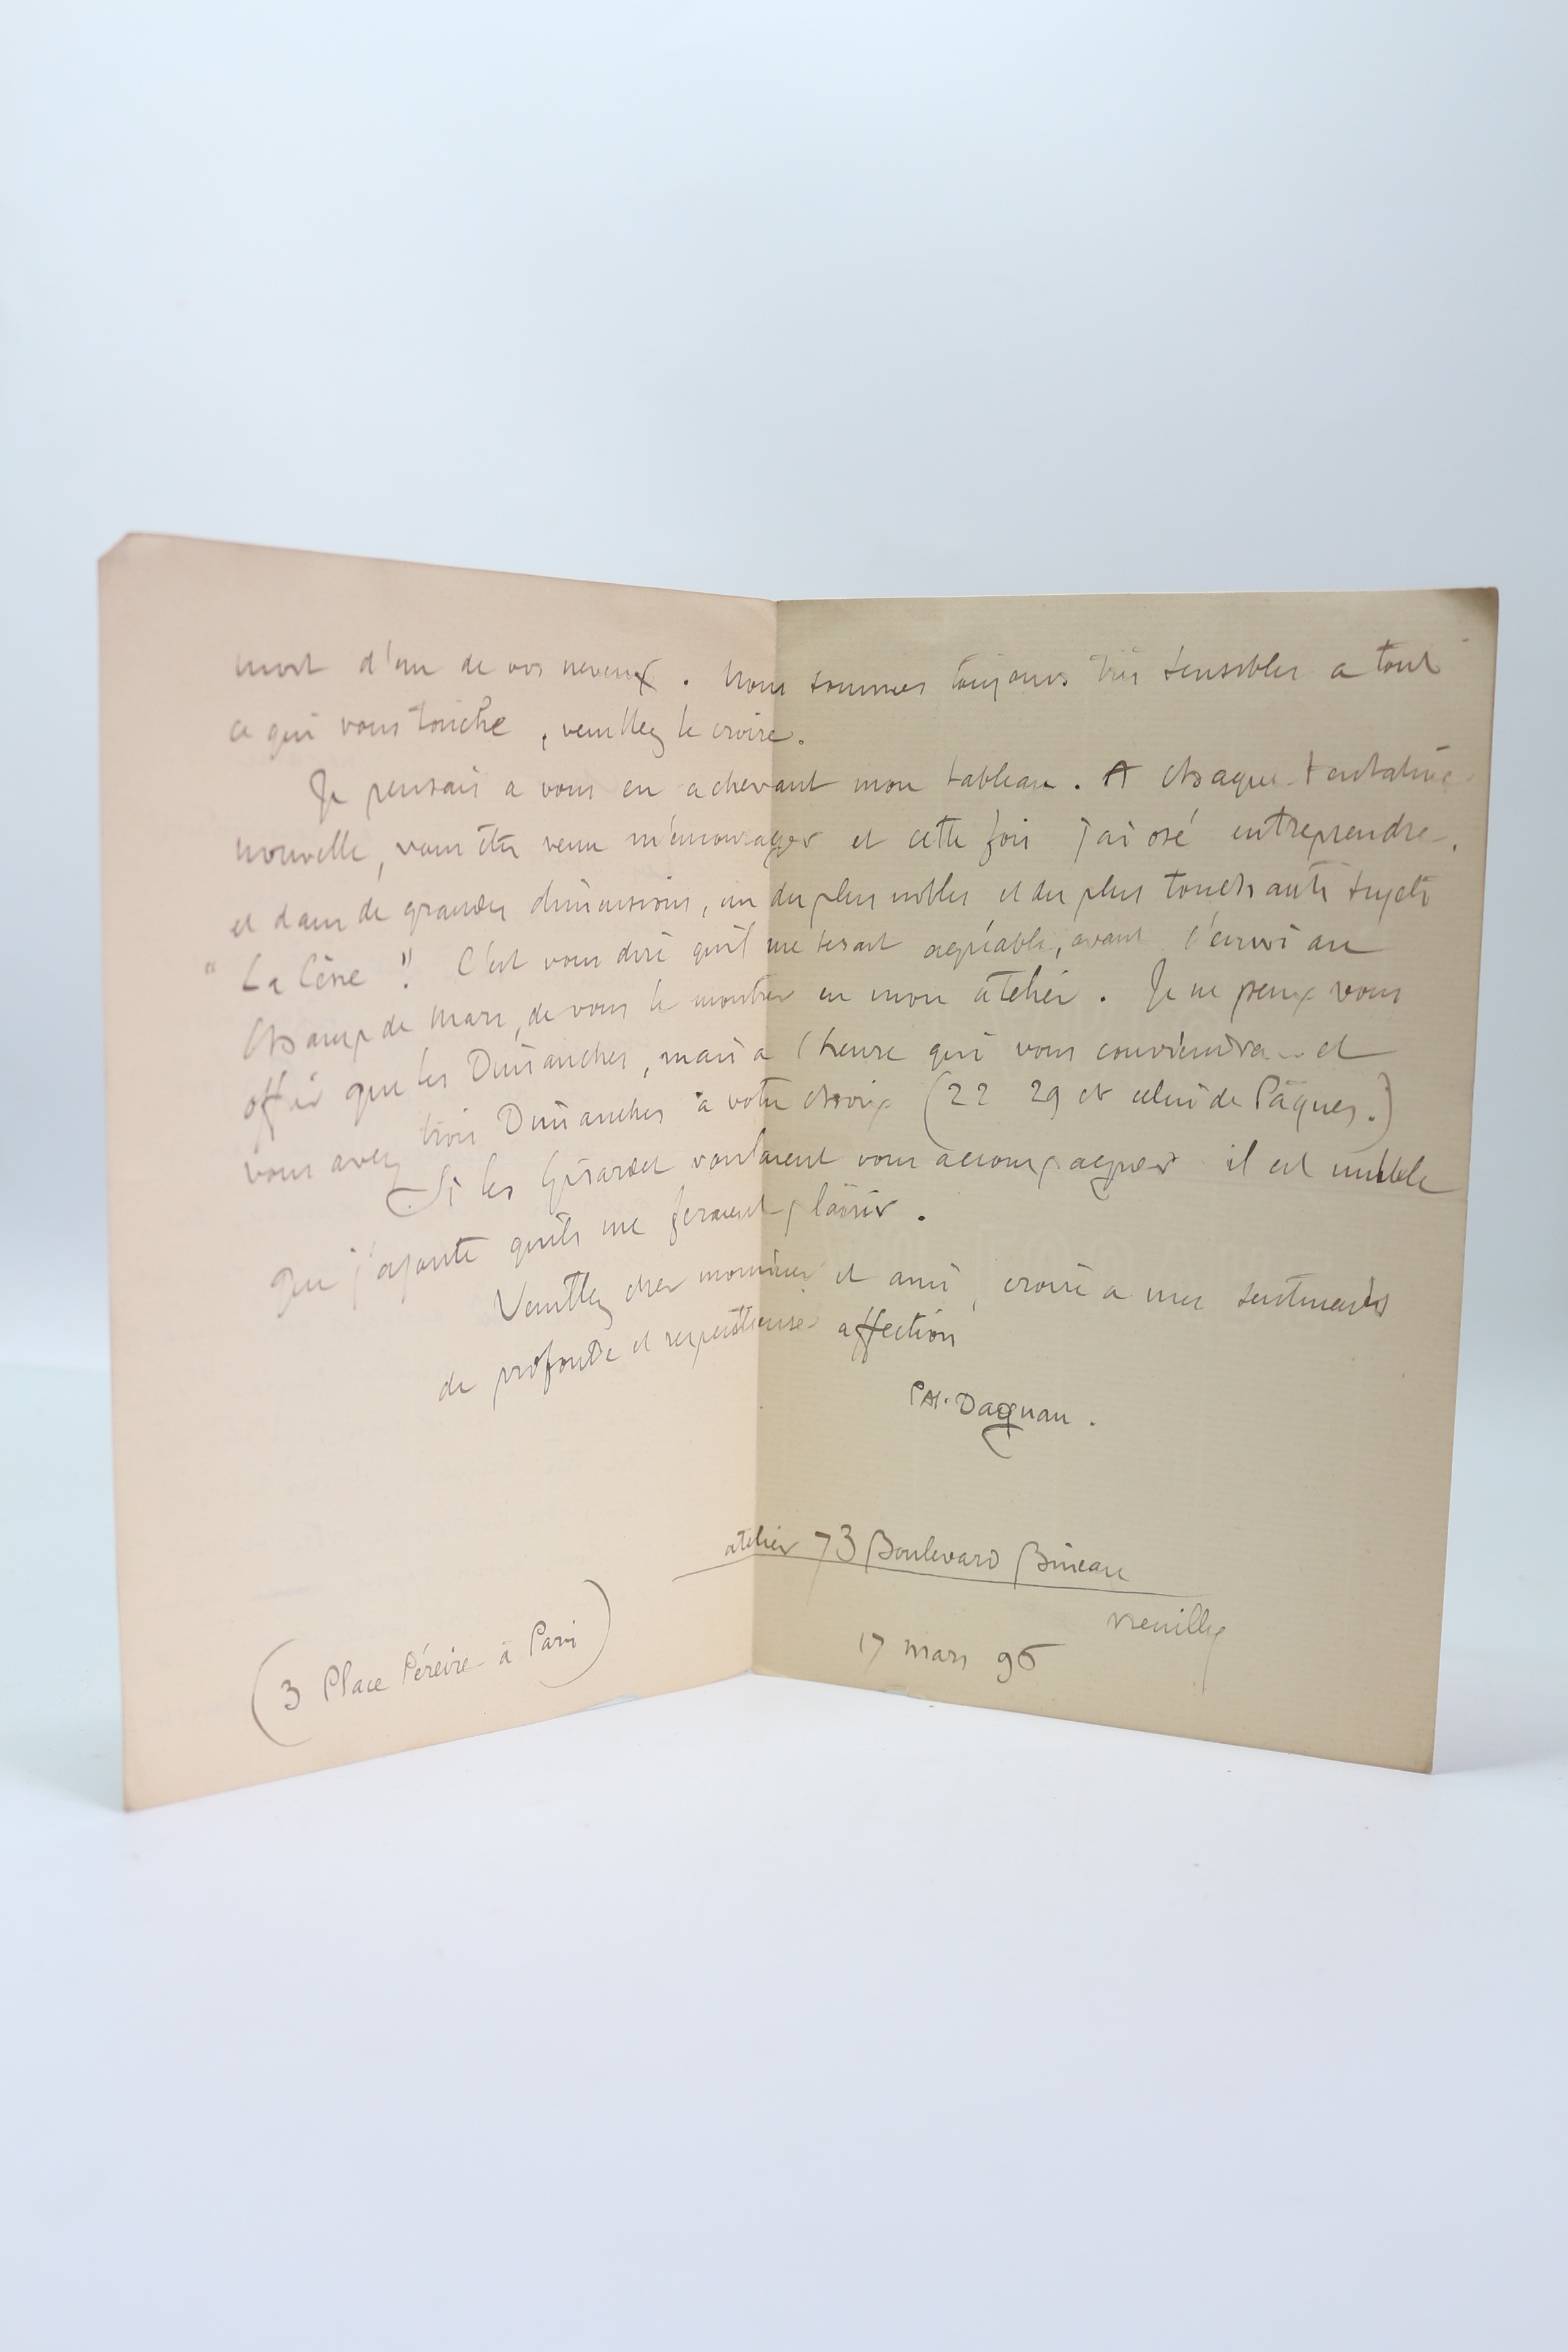 mort d'un de vos neveux. Nous sommes toujours très sensibles a tout
ce qui vous touche, veuillez le croire.
Je pensais a vous en achevant mon tableau. A chaque tentative
nouvelle, vous êtes venu m'encourager et cette fois j'ai osé entreprendre,
et dans de grandes dimensions, un des plus nobles et des plus touchants sujets
"La Cène". C'est vous dire qu'il me serait agréable, avant l'envoi au
Champ de Mars, de vous le montrer en mon atelier. Je ne peux vous
offrir que les Dimanches, mais a l'heure qui vous conviendra et
vous avez trois Dimanches à votre choix (22 29 et celui de Pâques.)
Si les Girardet voulaient vous accompagner il est inutile
que j'ajoute qu'ils me feraient plaisir.
Veuillez cher monsieur et ami, croire a mes sentiments
de profonde et respectueuse affection
PAJ. Dagnan.
atelier 73 Boulevard Bineau
Neuilly
17 mars 96
(3 Place Péreire à Paris)